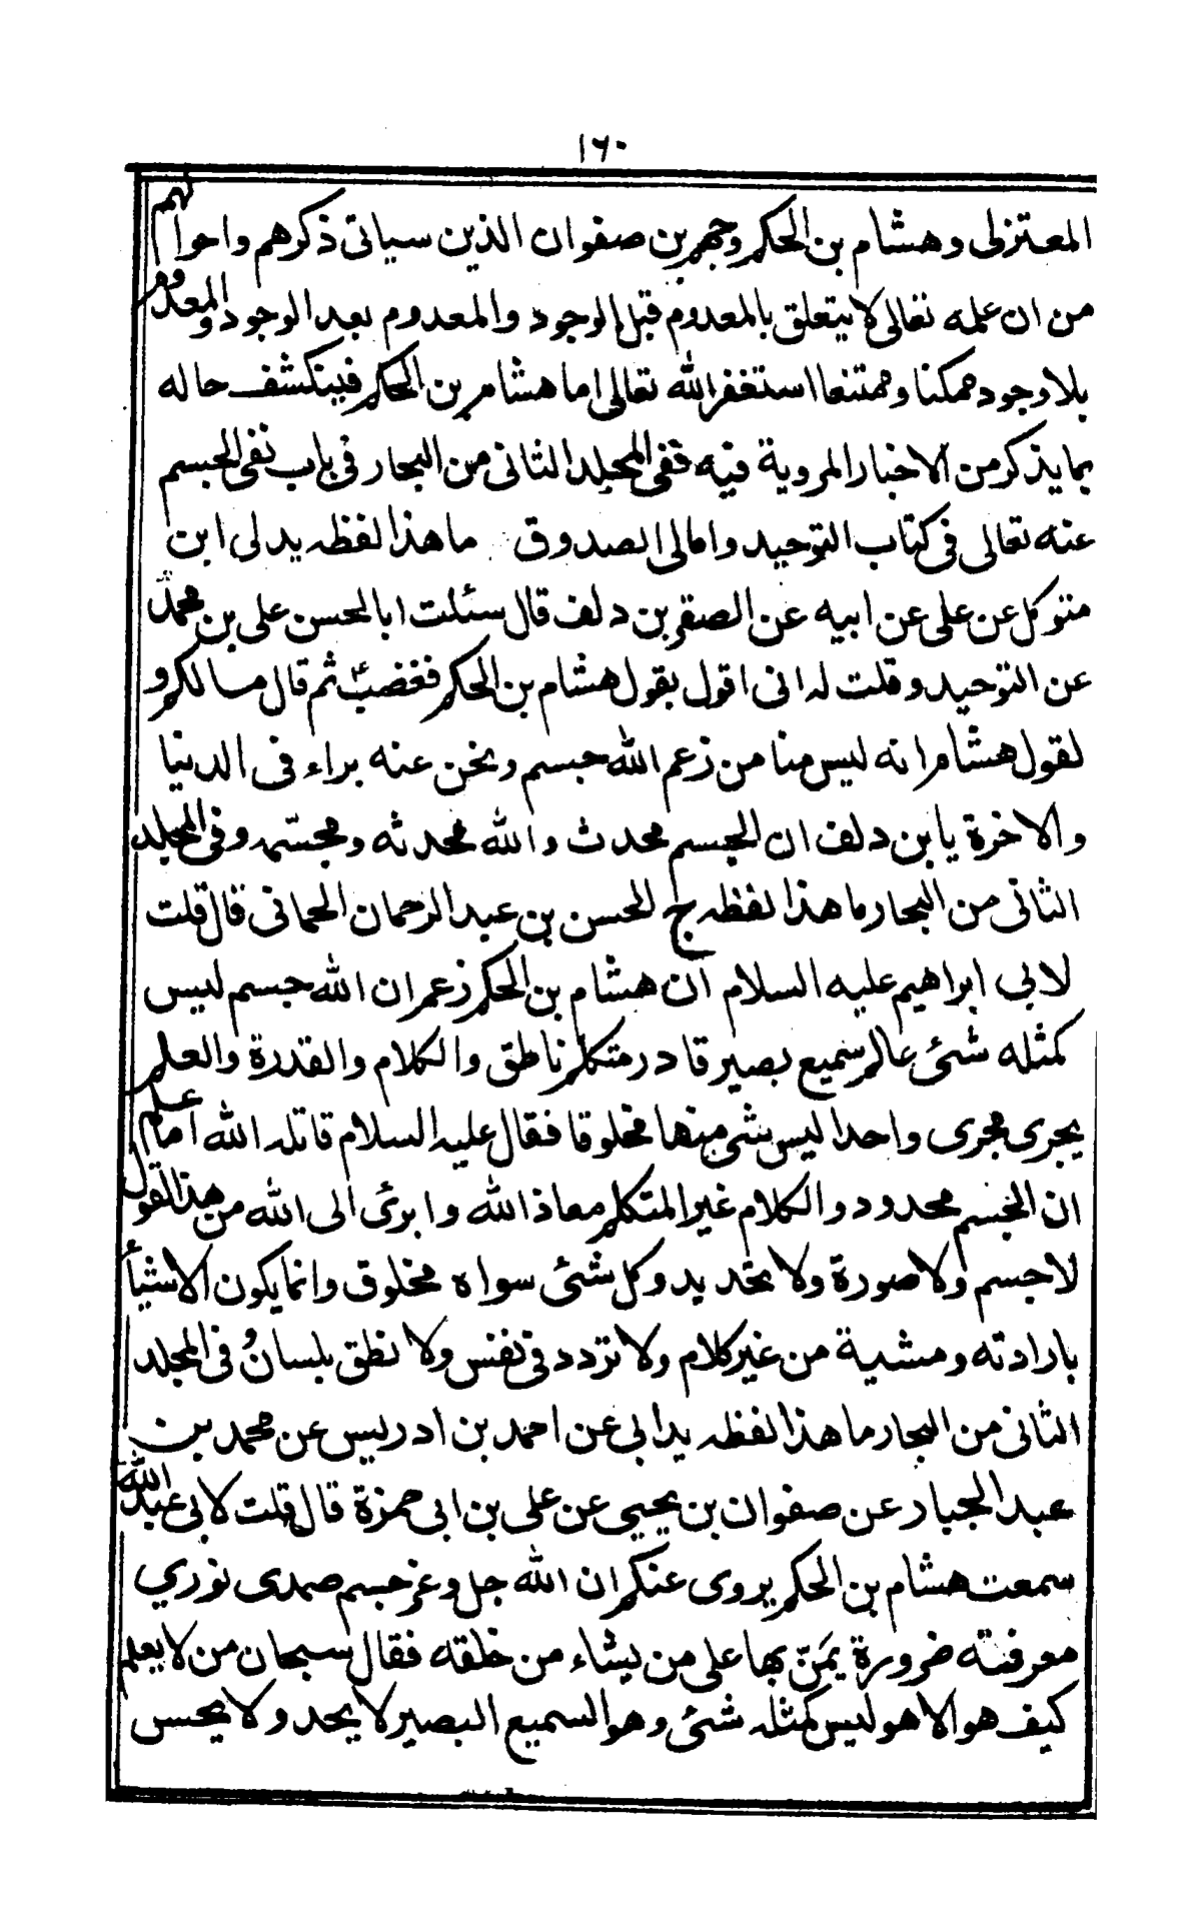 ١٦٠
المعتزلى وهشام بن الحكم وجهم بن صفوان الذين سياتى ذكرهم واحوالهم
من ان علمه تعالى لا يتعلق بالمعدوم قبل الوجود والمعدوم بعد الوجود والمعدوم
بلا وجود ممكنا وممتنعا استغفر الله تعالى اما هشام بن الحكم فينكشف حاله
بما يذكر من الاخبار المروية فيه ففى المجلد الثانى من البحار فى باب نفى الجسم
عنه تعالى فى كتاب التوحيد وامالى الصدوق ما هذا لفظه يد لى ابن
متوكل عن على عن ابيه عن الصقر بن دلف قال سئلت ابا الحسن على بن محمد
عن التوحيد وقلت له انى اقول بقول هشام بن الحكم فغضبؑ ثم قال مالكم و
لقول هشام انه ليس منا من زعم الله جسم ونحن عنه براء فى الدنيا
والاخرة يا بن دلف ان الجسم محدث والله محدثه ومجسّمه وفى المجلد
الثانى من البحار ما هذا لفظه ج الحسن بن عبد الرحمان الحمانى قال قلت
لابي ابراهيم عليه السلام ان هشام بن الحكم زعم ان الله جسم ليس
كمثله شئ عالم سميع بصير قادر متكلم ناطق والكلام والقدرة والعلم
يجرى مجرى واحدا ليس شى منها مخلوقا فقال عليه السلام قاتله الله اما علم
ان الجسم محدود والكلام غير المتكلم معاذ الله وابرئ الى الله من هذا القول
لا جسم ولا صورة ولا تحديد وكل شئ سواه مخلوق وانما يكون الاشيأ
بارادته ومشية من غير كلام ولا تردد فى نفس ولا نطق بلسان و فى المجلد
الثانى من البحار ما هذا لفظه يد ابى عن احمد بن ادريس عن محمد بن
عبد الجبار عن صفوان بن يحيى عن على بن ابى حمزة قال قلت لابى عبد الله
سمعت هشام بن الحكم يروى عنكم ان الله جل وعز جسم صمدى نوري
معرفته ضرورة يمَنّ بها على من يشاء من خلقه فقال سبحان من لا يعلم
كيف هو الا هو ليس كمثله شئ وهو السميع البصير لا يحد ولا يحس